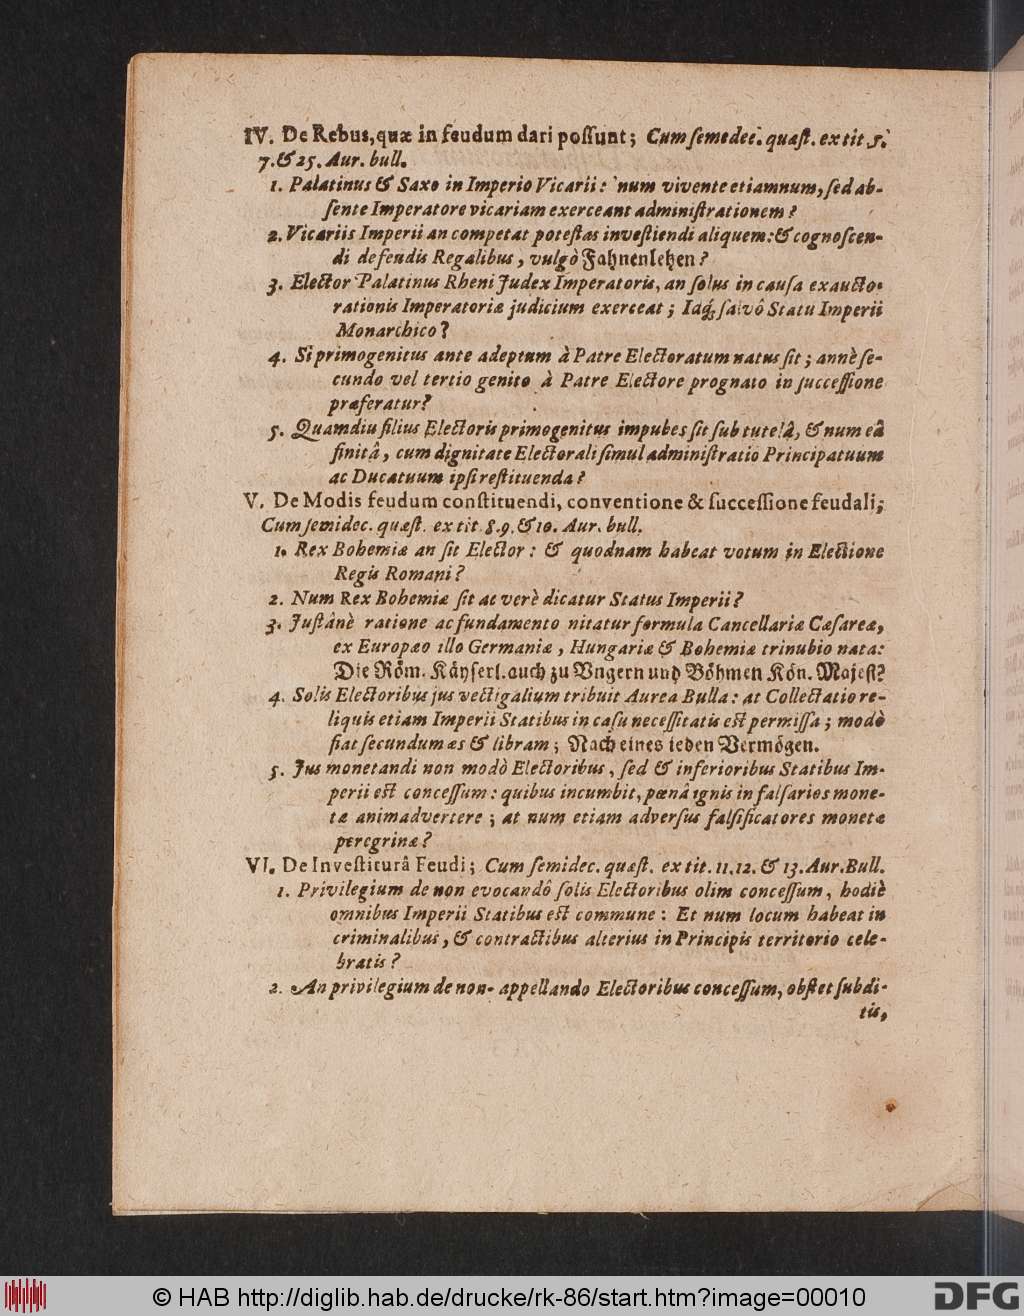 IV. De Rebus, quæ in feudum dari poſſunt; Cum ſemedec. quæſt. ex tit. 5.
7. & 25. Aur. bull.
1. Palatinus & Saxo in Imperio Vicarii: num vivente etiamnum, ſed ab-
ſente Imperatore vicariam exerceant adminiſtrationem?
2. Vicariis Imperii an competat poteſtas inveſtiendi aliquem: & cognoſcen-
di de feudis Regalibus, vulgò Fahnenlehen?
3. Elector Palatinus Rheni Judex Imperatoris, an ſolus in cauſa exaucto-
rationis Imperatoriæ judicium exerceat; Idq́; ſalvô Statu Imperii
Monarchico?
4. Si primogenitus ante adeptum à Patre Electoratum natus ſit; annè ſe-
cundo vel tertio genito à Patre Electore prognato in ſucceſſione
præferatur?
5. Quamdiu filius Electoris primogenitus impubes ſit ſub tutelâ, & num eâ
finitâ, cum dignitate Electorali ſimul adminiſtratio Principatuum
ac Ducatuum ipſi reſtituenda?
V. De Modis feudum conſtituendi, conventione & ſucceſſione feudali;
Cum ſemidec. quæſt. ex tit. 8. 9. & 10. Aur. bull.
1. Rex Bohemiæ an ſit Elector: & quodnam habeat votum in Electione
Regis Romani?
2. Num Rex Bohemiæ ſit ac verè dicatur Status Imperii?
3. Juſtânè ratione ac fundamento nitatur formula Cancellariæ Cæſareæ,
ex Europæo illo Germaniæ, Hungariæ & Bohemiæ trinubio nata:
Die Röm. Käyſerl. auch zu Vngern und Böhmen Kön. Majeſt?
4. Solis Electoribus jus vectigalium tribuit Aurea Bulla: at Collectatio re-
liquis etiam Imperii Statibus in caſu neceſſitatis eſt permiſſa; modò
fiat ſecundum æs & libram; Nach eines ieden Vermögen.
5. Jus monetandi non modò Electoribus, ſed & inferioribus Statibus Im-
perii eſt conceſſum: quibus incumbit, pœnâ ignis in falſarios mone-
tæ animadvertere; at num etiam adverſus falſificatores monetæ
peregrinæ?
VI. De Inveſtiturâ Feudi; Cum ſemidec. quæſt. ex tit. 11. 12. & 13. Aur. Bull.
1. Privilegium de non evocandô ſolis Electoribus olim conceſſum, hodiè
omnibus Imperii Statibus eſt commune: Et num locum habeat in
criminalibus, & contractibus alterius in Principis territorio cele-
bratis?
2. An privilegium de non-appellando Electoribus conceſſum, obſtet ſubdi-
tis,
© HAB http://diglib.hab.de/drucke/rk-86/start.htm?image=00010
DFG